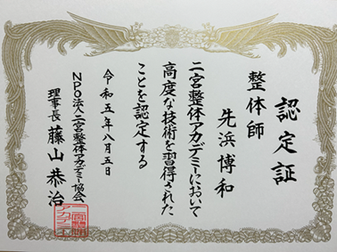 認定証
整体師
先浜博和
二宮整体アカデミーにおいて
高度な技術を習得された
ことを認定する
令和五年八月五日
NPO法人二宮整体アカデミー協会
理事長 藤山恭治